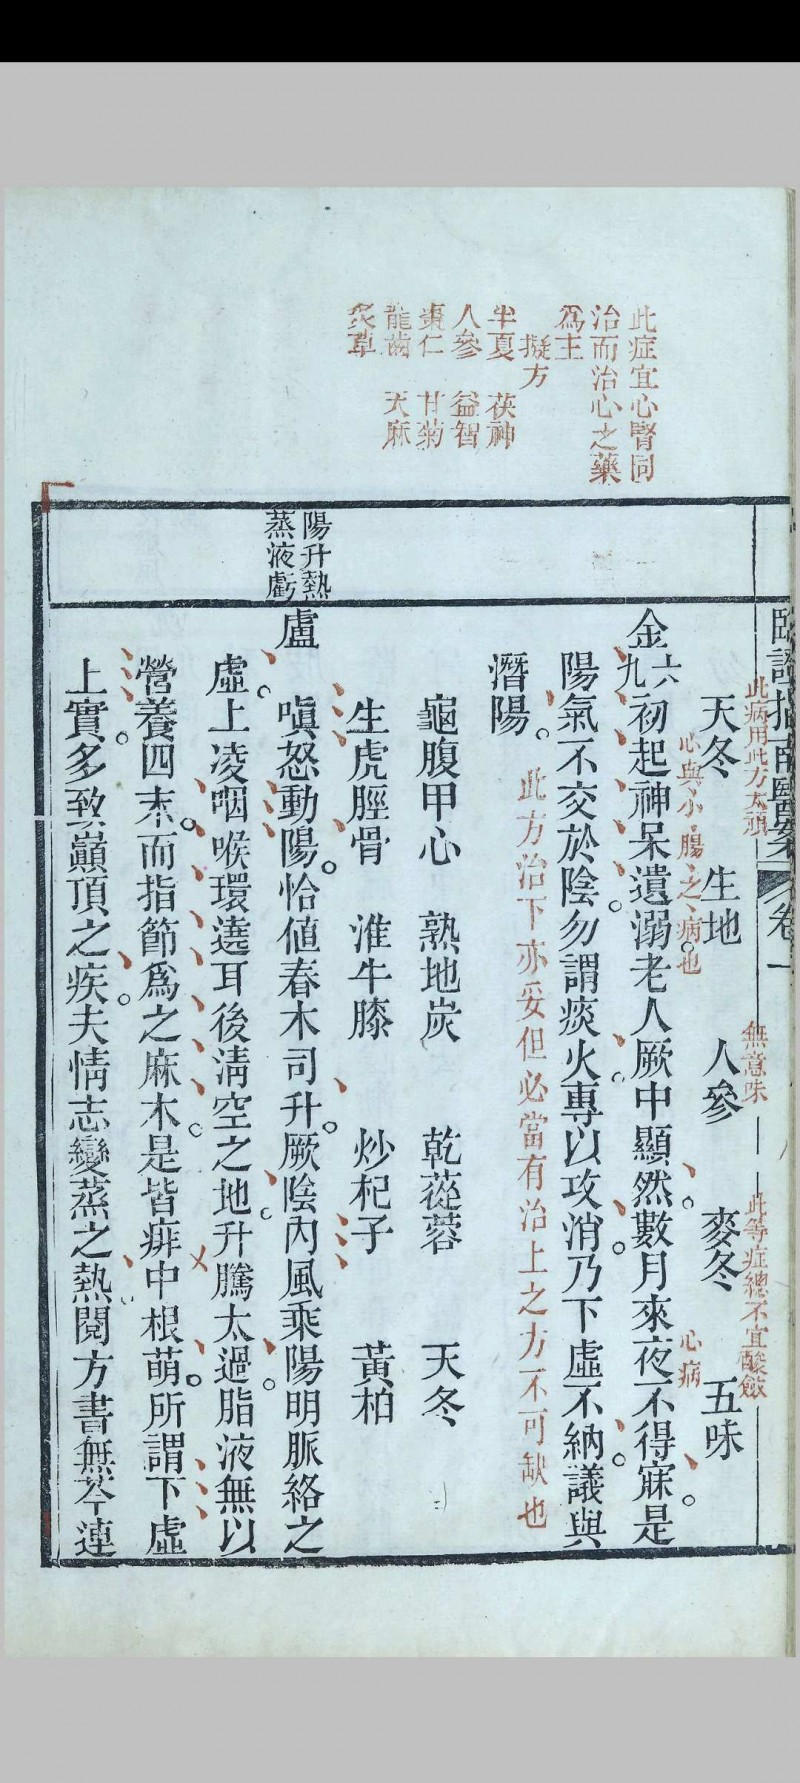 此症宜心腎同
治而治心之藥
為主
擬方
半夏　茯神
人參　益智
棗仁　甘菊
龍齒　天麻
炙草
陽升熱
蒸液虧
臨證指南醫案　卷一
此病用此方太頑
無意味
此等症總不宜酸斂
天冬　生地　人參　麥冬　五味
心與小腸之病也
心病
金六九初起神呆遺溺老人厥中顯然數月來夜不得寐是
陽氣不交於陰勿謂痰火專以攻消乃下虛不納議與
潛陽
此方治下亦妥但必當有治上之方不可缺也
龜腹甲心　熟地炭　乾蓯蓉　天冬
生虎脛骨　淮牛膝　炒杞子　黃柏
盧　嗔怒動陽恰值春木司升厥陰內風乘陽明脈絡之
虛上凌咽喉環遶耳後清空之地升騰太過脂液無以
營養四末而指節為之麻木是皆痱中根萌所謂下虛
上實多致巔頂之疾夫情志變蒸之熱閱方書無芩連